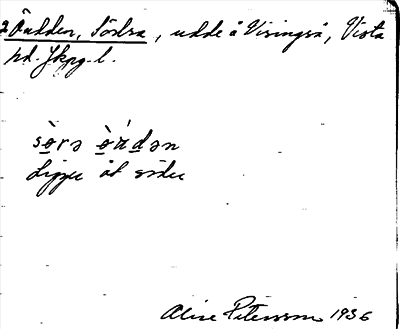 2 Åudden, Södra, udde å Visingsö, Vista
hd. Jkpg. l.
sò̱rə ò̱ádən
Ligger åt söder
Alice Petersson 1936